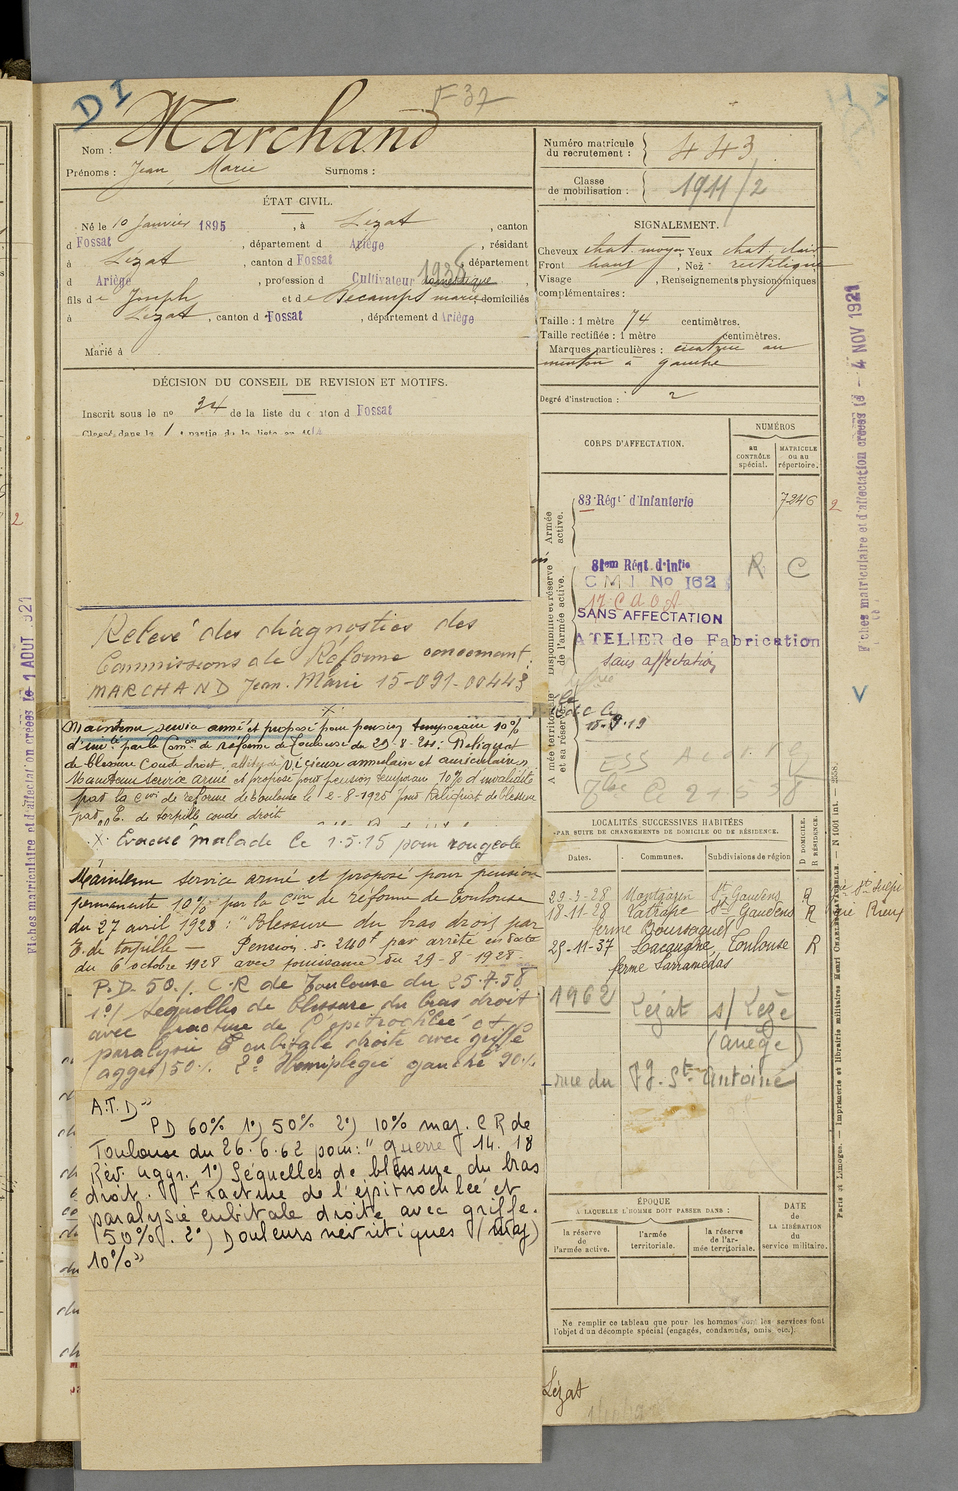 D I
F 37
Nom : Marchand
Prénoms : Jean Marie Surnoms :
ÉTAT CIVIL.
Né le 10 Janvier 1895, à Lézat, canton
d Fossat, département d Ariège, résidant
à Lézat, canton d Fossat, département
d Ariège, profession d Cultivateur domestique 1936,
fils de Joseph et de Decamps marie domiciliés
à Lézat, canton d Fossat, département d Ariège
Marié à
DÉCISION DU CONSEIL DE REVISION ET MOTIFS.
Inscrit sous le no 34 de la liste du canton d Fossat
Classé dans la 1 partie de la liste en 191
Relevé des diagnostics des
Commissions de Réforme concernant
MARCHAND Jean-Marie 15-091-00443
Maintenu service armé et proposé pour pension temporaire 10%
d'inv.té par la Com.on de réforme de Toulouse du 29-8-24: Reliquat
de blessure coude droit, attitude vicieuse annulaire et auriculaire
Maintenu service armé et proposé pour pension temporaire 10% d'invalidité
par la Con de réforme de Toulouse le 2-8-1926 pour Reliquat de blessure
par E. de torpille coude droit
X. Evacué malade le 1.5.15 pour rougeole
Maintenu service armé et proposé pour pension
permanente 10% par la Cion de réforme de Toulouse
du 27 avril 1928: "Blessure du bras droit par
E. de torpille — Pension de 240f par arrêté en date
du 6 octobre 1928 avec jouissance du 29-8-1928.
P.D. 50% C.R de Toulouse du 25.7.58
1°/ Séquelles de blessure du bras droit
avec fracture de l'épitrochlée et
paralysie cubitale droite avec griffe
(aggr) 50% 2° Hémiplégie gauche 90%
A.T.D"
PD 60% 1°) 50% 2°) 10% maj. CR de
Toulouse du 26.6.62 pour: "guerre 14.18
Rév. aggr. 1°) Séquelles de blessure du bras
droit. Fracture de l'épitrochlée et
paralysie cubitale droite avec griffe.
50%. 2°) Douleurs névritiques (maj)
10%"
Numéro matricule
du recrutement : 443
Classe
de mobilisation : 1911/2
SIGNALEMENT.
Cheveux chat. moyen, Yeux chat. clair
Front haut, Nez rectiligne
Visage , Renseignements physionomiques
complémentaires :
Taille : 1 mètre 74 centimètres.
Taille rectifiée : 1 mètre centimètres.
Marques particulières : cicatrice au
menton à gauche
Degré d'instruction : 2
CORPS D'AFFECTATION.
NUMÉROS
AU
CONTRÔLE
spécial.
MATRICULE
OU AU
répertoire.
Armée
active.
83 Régt d'Infanterie 7246
2
Disponibilité et réserve
de l'armée active.
81em Régt. d'Infie R C
C M I. No 162
17. C. O. A
SANS AFFECTATION
ATELIER de Fabrication
sans affectation
Armée territoriale
et sa réserve
15-9-19
LOCALITÉS SUCCESSIVES HABITÉES
PAR SUITE DE CHANGEMENTS DE DOMICILE OU DE RÉSIDENCE.
Dates. Communes. Subdivisions de région
D DOMICILE.
R RÉSIDENCE.
29-3-28 Montgazin St Gaudens R
18-11-28 Latrape St Gaudens R
ferme Boursaguet
25-11-37 Lacaugne Toulouse R
ferme Sarramédas
1962 Lézat s/ Lèze
(ariège)
rue du Fg. St. Antoine
ÉPOQUE
A LAQUELLE L'HOMME DOIT PASSER DANS :
la réserve
de
l'armée active.
l'armée
territoriale.
la réserve
de l'ar-
mée territoriale.
DATE
de
LA LIBÉRATION
du
service militaire.
Ne remplir ce tableau que pour les hommes dont les services font
l'objet d'un décompte spécial (engagés, condamnés, omis, etc.).
Lézat
Fiches matriculaire et d'affectation créées le - 4 NOV 1921
Fiches matriculaire et d'affectation créées le 1 AOUT 1921
Paris et Limoges. — Imprimerie et librairie militaires Henri CHARLES-LAVAUZELLE. — N 1601 int.